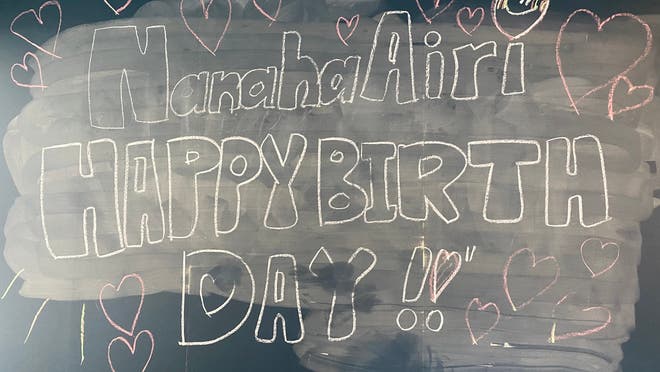 Nanaha Airi
HAPPY BIRTH
DAY !!